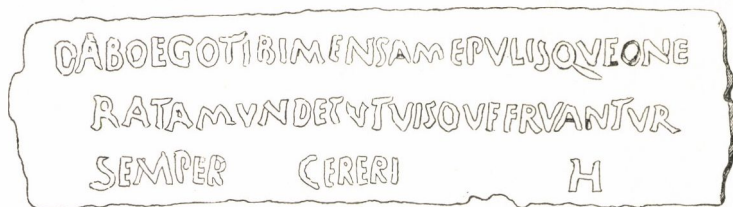 DABOEGOTIBIMENSAMEPVLISQVEONE
RATAMVNDETVTVISOVFFRVANTVR
SEMPER CERERI H